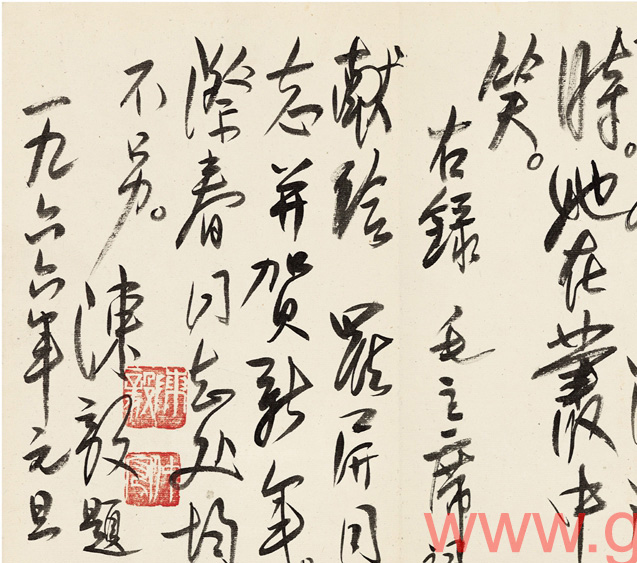 時。她在叢中
笑。
右錄毛主席詞
獻给羅屏同
志并賀新年。
際春同志处均
不另。陳毅題
一九六六年元旦
陳毅
www.g